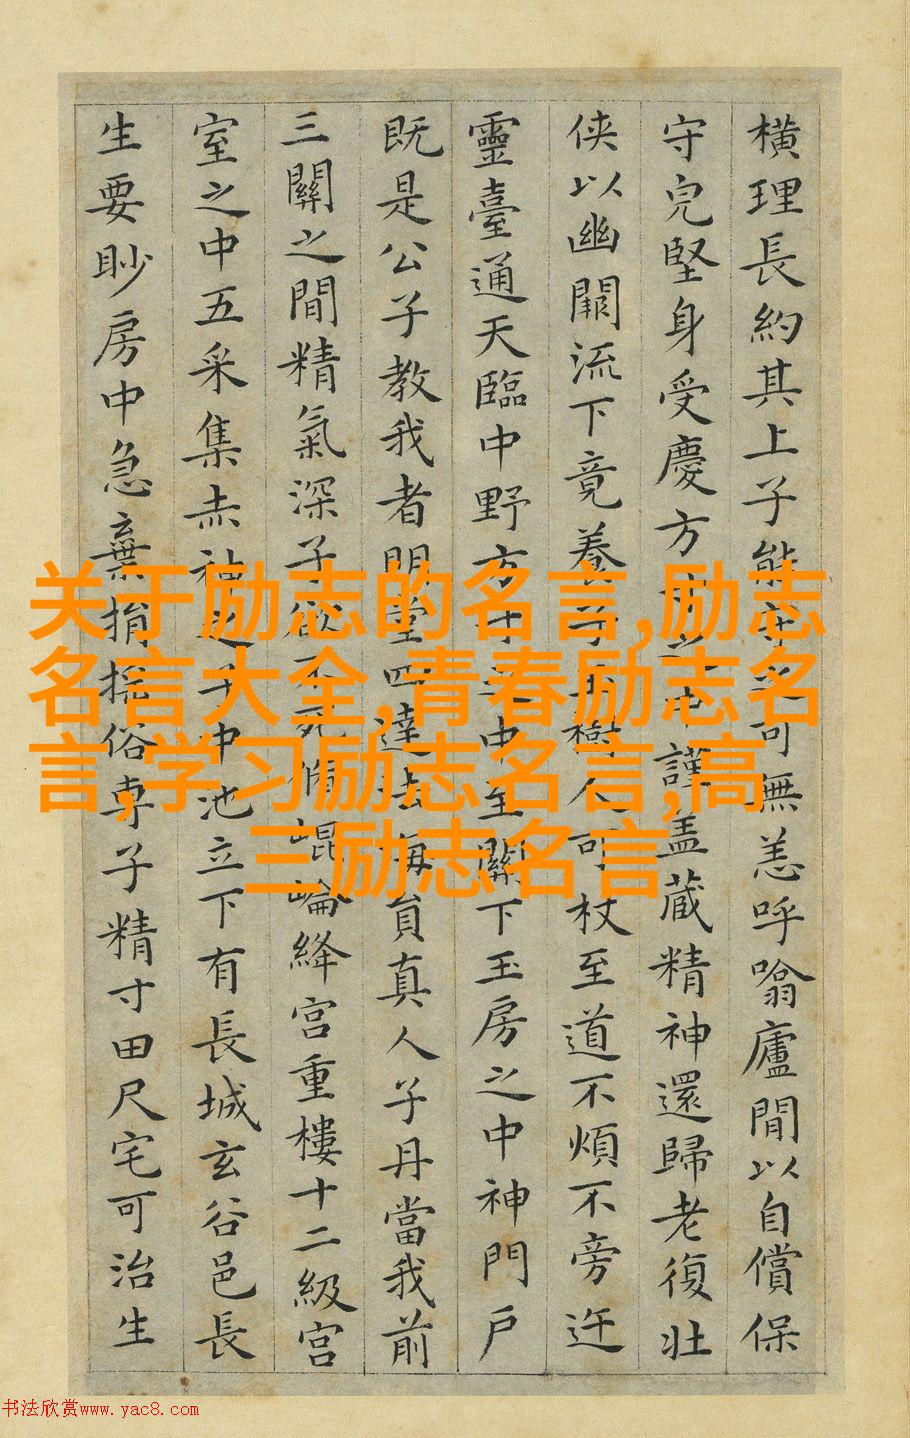 横理長約其上子能守之可無恙呼噏廬間以自償保
守皃堅身受慶方寸之中謹盖藏精神還歸老復壯
侠以幽闕流下竟養子玉樹人可杖至道不煩不旁迕
靈臺通天臨中野方寸之中至關下玉房之中神門戶
既是公子教我者明堂四達法海員真人子丹當我前
三關之間精氣深子欲不死脩崐崘絳宮重樓十二級宮
室之中五采集赤神之子中池立下有長城玄谷邑長
生要眇房中急棄捐搖俗専子精寸田尺宅可治生
关于励志的名言,励志
名言大全,青春励志名
言,学习励志名言,高
三励志名言
书法欣赏www.yac8.com